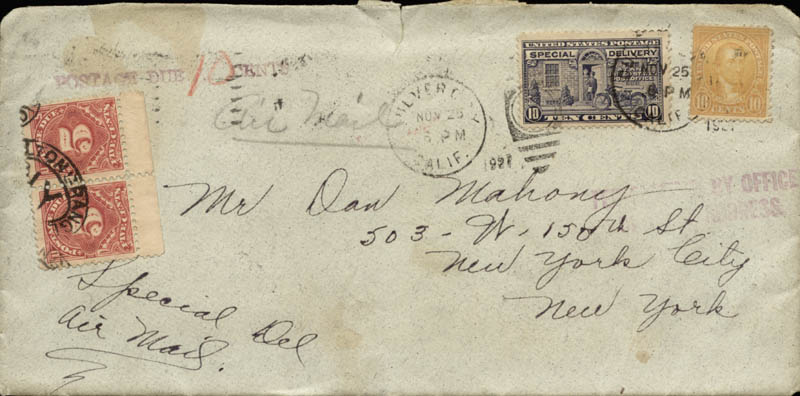 POSTAGE DUE 10 CENTS
Air Mail
CULVER CITY
NOV 25
6 PM
CALIF.
1927
UNITED STATES POSTAGE
SPECIAL DELIVERY
10 10
TEN CENTS
NOV 25
6 PM
CALIF.
1927
10 CENTS 10
5
5
BY OFFICE
ADDRESS.
Mr Dan Mahoney
503 - W. 150th St
New York City
New York
Special Del
Air Mail.